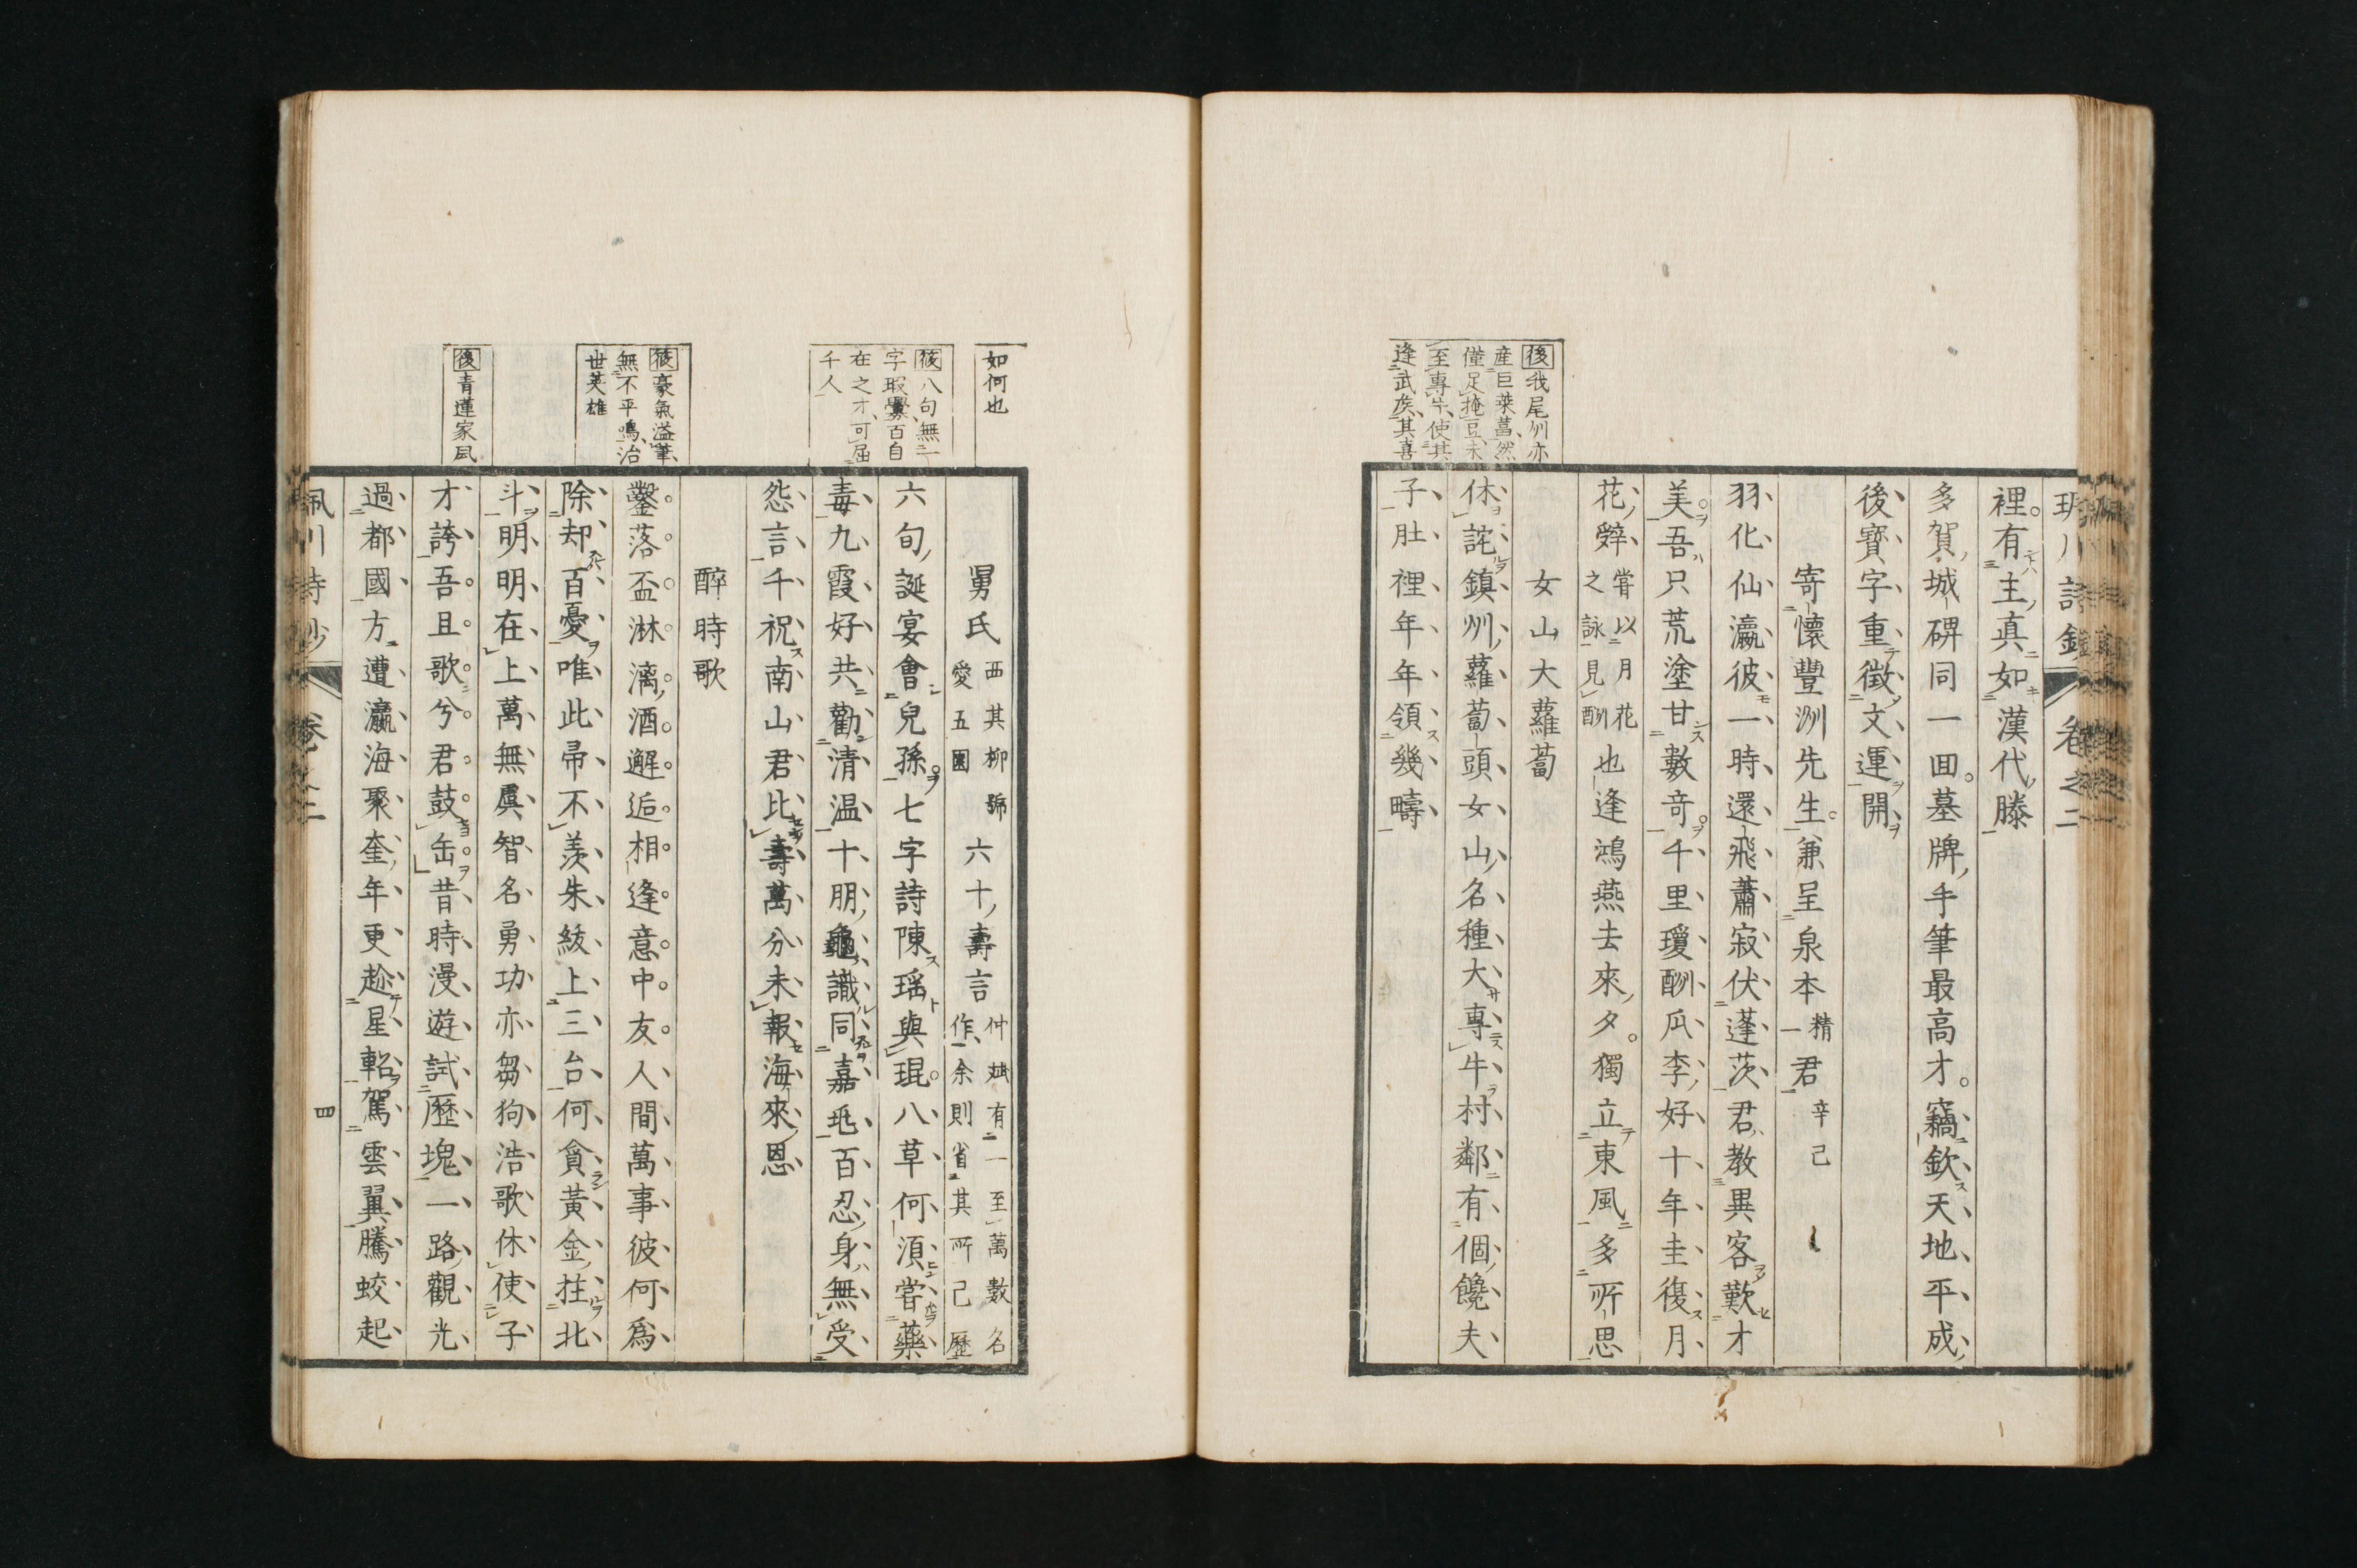 裡有主真如漢代滕
多賀城碑同一回墓牌手筆最高才竊欽天地平成
後寶字重徵文運開
寄懷豐洲先生兼呈泉本精一君辛己
羽化仙瀛彼一時還飛蕭寂伏蓬茨君教異客歎才
美吾只荒塗甘數奇千里瓊酬瓜李好十年圭復月
花辤嘗以月花之詠見酬也逢鴻燕去來夕獨立東風多所思
女山大蘿蔔
休詫鎮州蘿蔔頭女山名種大專牛村鄰有個饞夫
子肚裡年年領幾疇
後我尾州亦
産巨萊菖然
僅足掩豆未
至專牛使其
逢武矦其喜
如何也
舅氏西其柳號愛五園六十壽言仲斌有一至萬數名作余則省其所己歷
六旬誕宴會兒孫七字詩陳瑤與琨八草何須嘗藥
毒九霞好共勸清温十朋龜識同嘉兆百忍身無受
怨言千祝南山君比壽萬分未報海來恩
筱八句無一
字瑕舋百自
在之才可屈
千人
醉時歌
鑿落盃淋漓酒邂逅相逢意中友人間萬事彼何爲
除却百憂唯此帚不羨朱紱上三台何貪黃金拄北
斗明明在上萬無虞智名勇功亦芻狗浩歌休使子
才誇吾且歌兮君鼓缶昔時漫遊試歷塊一路觀光
過都國方遭瀛海聚奎年更趁星軺駕雲翼騰蛟起
筱豪氣溢筆
無不平鳴治
世英雄
後青蓮家風
卷之二
四